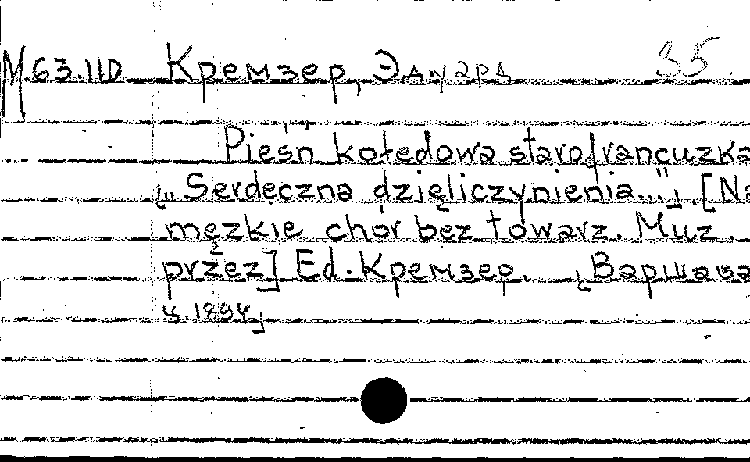 М63.11D Кремзер, Эдуард 35
Pieśń kołedowa starofrancuzka
„Serdeczna dzięliczynienia..." [Na
męzkie chór bez towarz. Muz.
przez] Ed. Кремзер. [Варшава
ц. 1894]